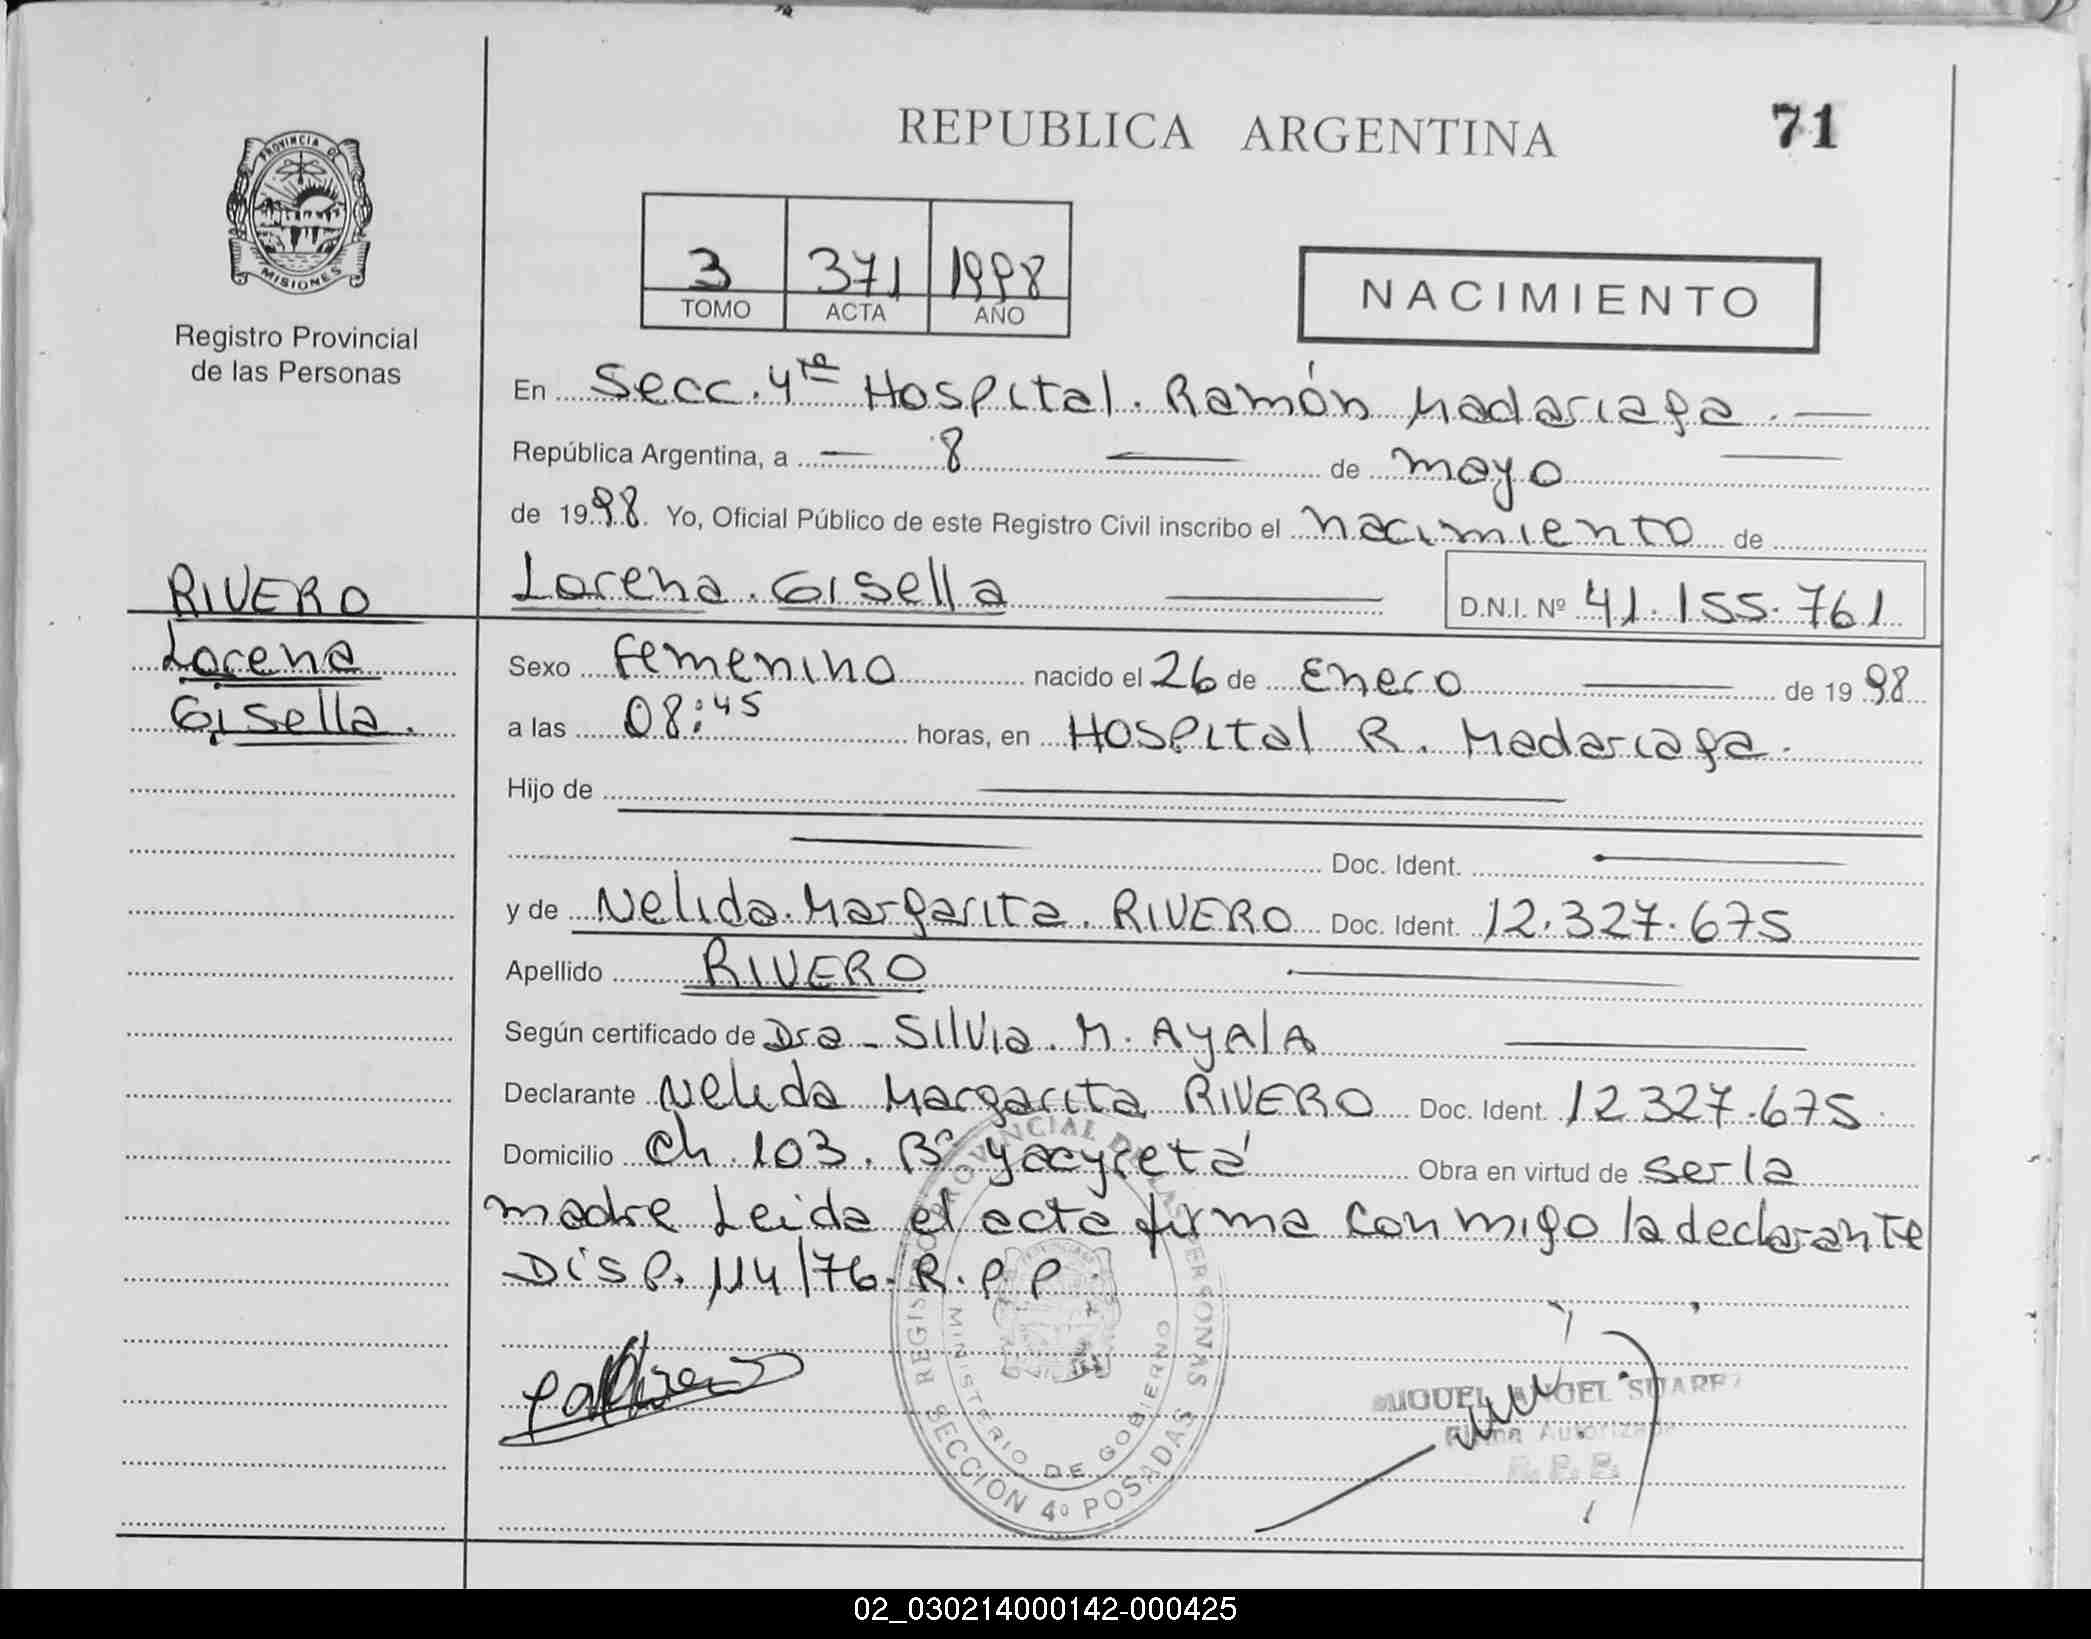 REPUBLICA ARGENTINA
71
PROVINCIA DE
MISIONES
Registro Provincial
de las Personas
3 371 1998
TOMO ACTA AÑO
NACIMIENTO
En Secc. 4ta Hospital. Ramón Madariaga.
República Argentina, a 8 de mayo
de 1998. Yo, Oficial Público de este Registro Civil inscribo el nacimiento de
RIVERO
Lorena
Gisella.
Lorena. Gisella D.N.I. Nº 41.155.761
Sexo Femenino nacido el 26 de Enero de 1998
a las 08:45 horas, en Hospital R. Madariaga.
Hijo de
Doc. Ident.
y de Nelida. Margarita. RIVERO Doc. Ident. 12.327.675
Apellido RIVERO
Según certificado de Dra - Silvia. M. AYALA
Declarante Nelida Margarita RIVERO Doc. Ident. 12 327.675
Domicilio Ch. 103. Bº Yacyretá Obra en virtud de ser la
madre Leida el acta firma conmigo la declarante
Disp. 114/76. R.P.P.
REGISTRO PROVINCIAL DE LAS PERSONAS
MINISTERIO DE GOBIERNO
SECCION 4º POSADAS
MIGUEL ANGEL SUAREZ
Firma Autorizada
R. P. P.
02_030214000142-000425